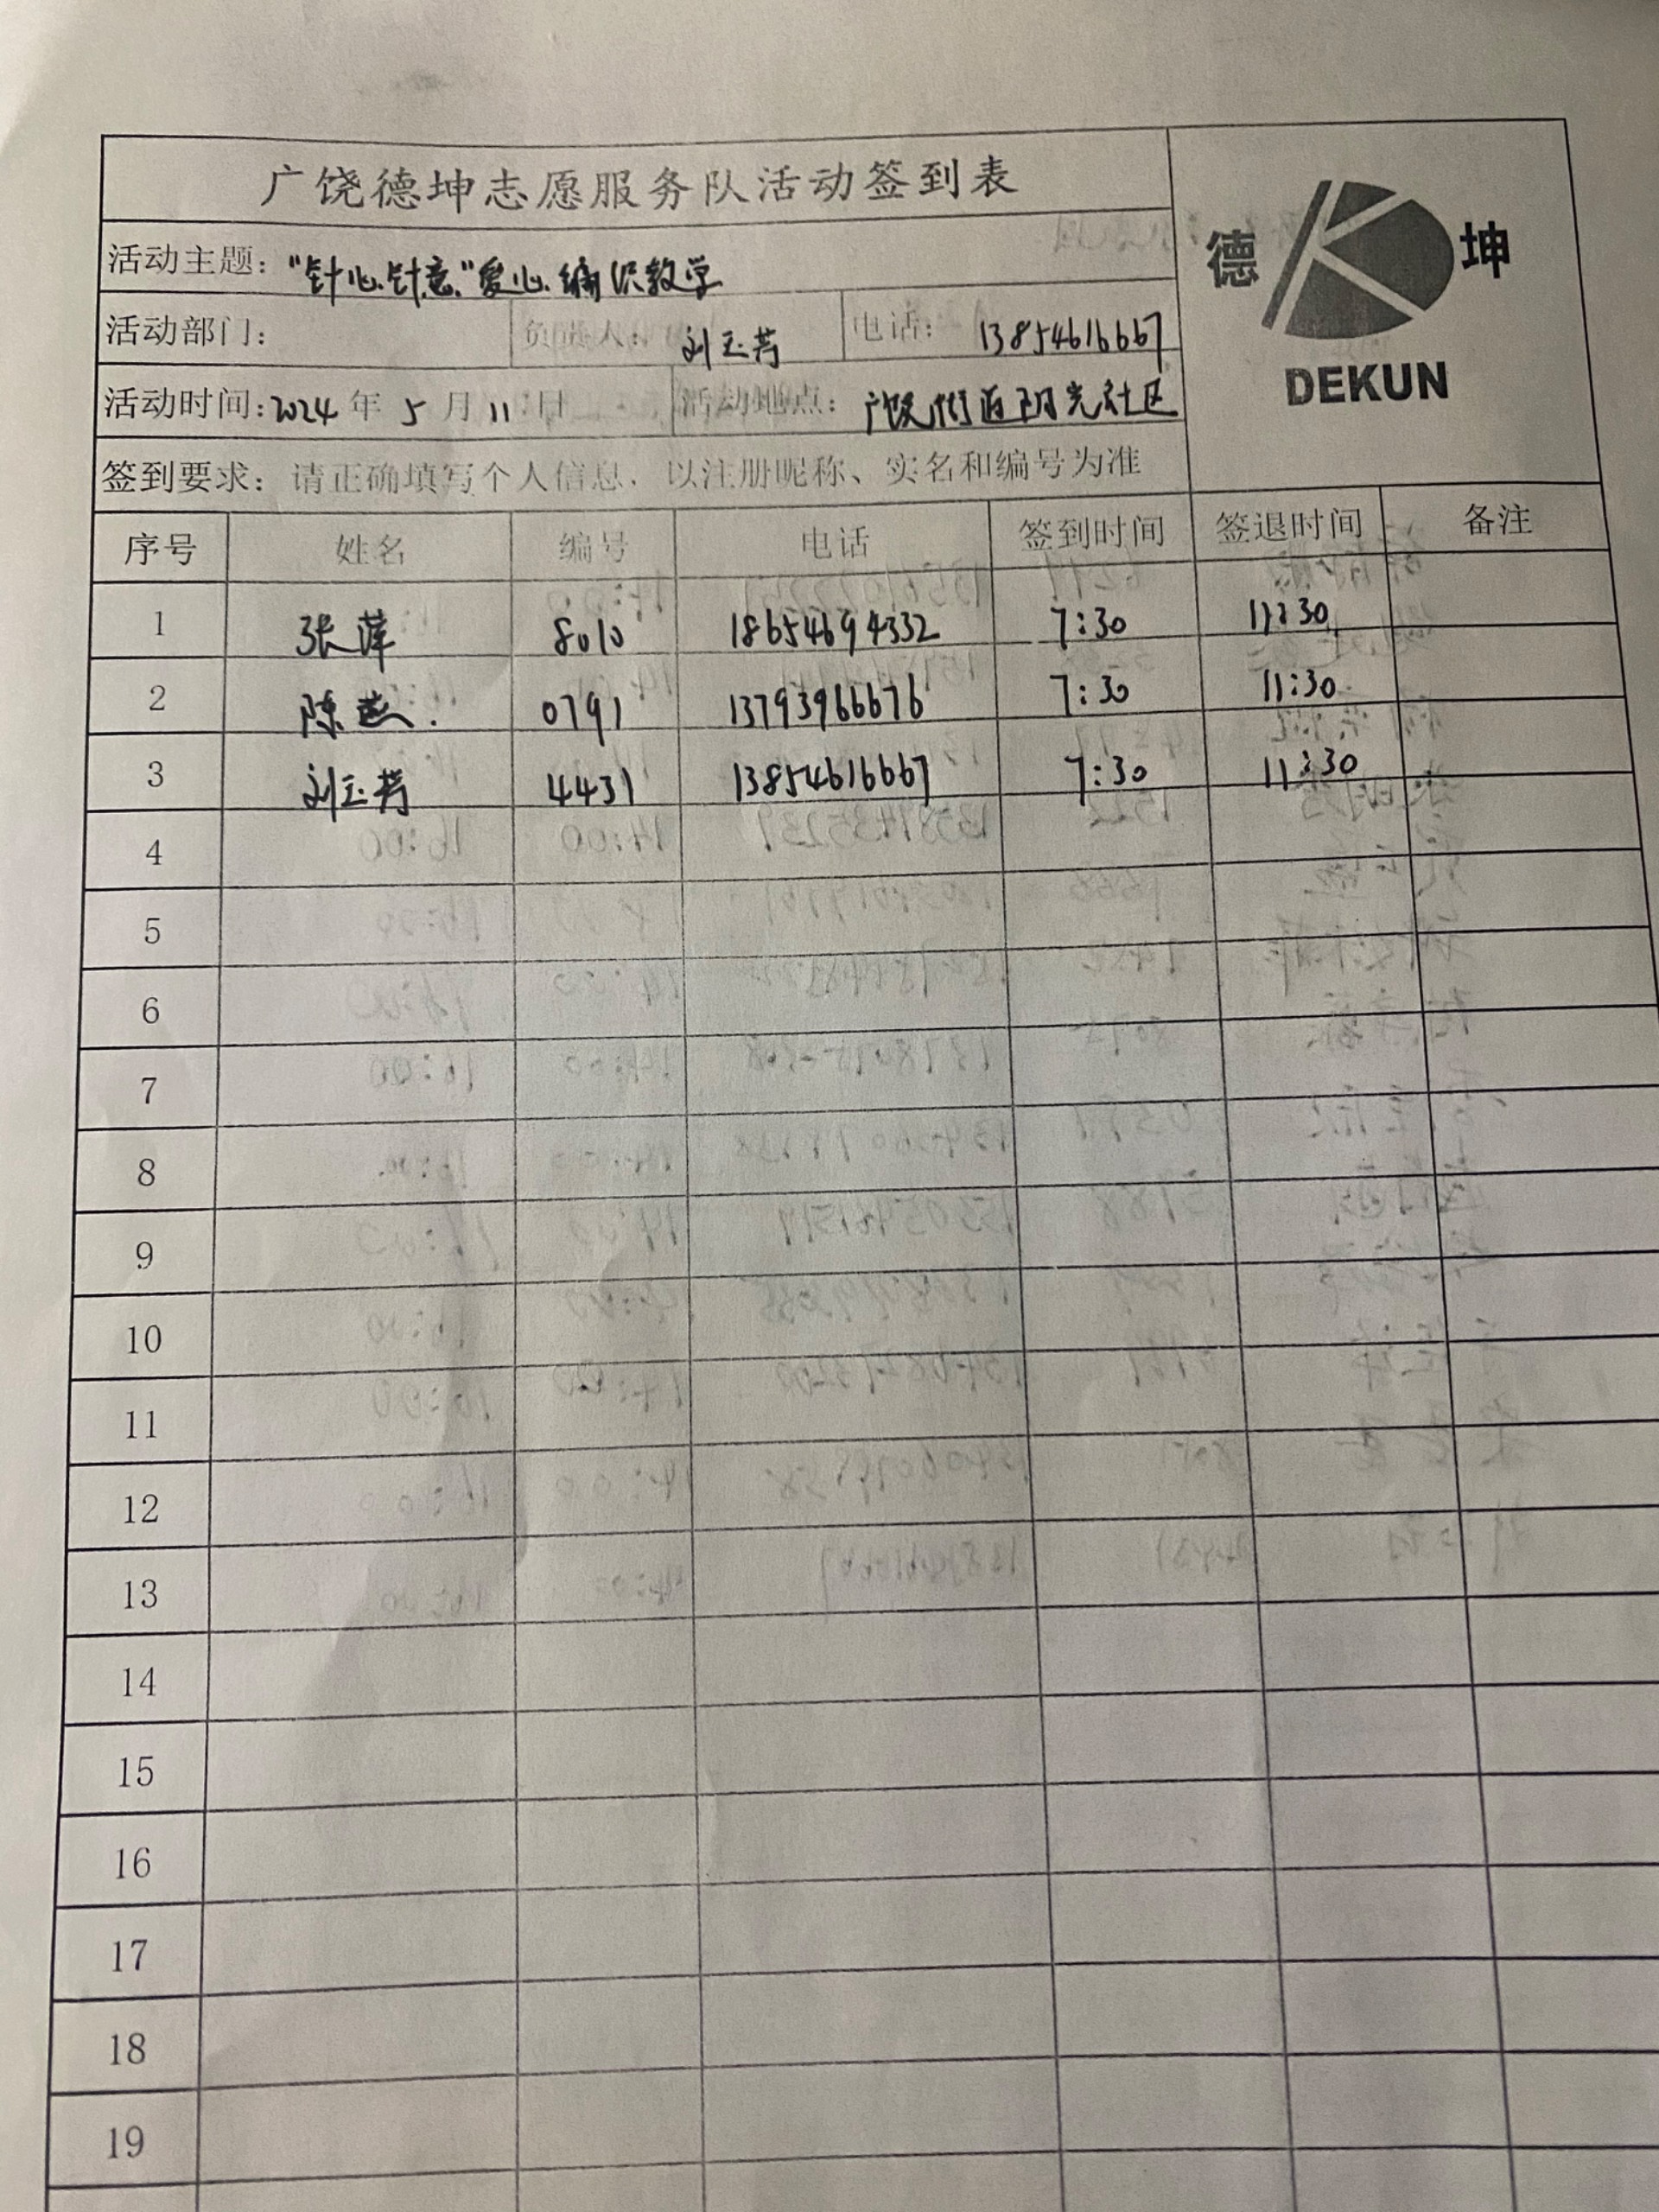 广饶德坤志愿服务队活动签到表
德 坤
DEKUN
活动主题："针心针意"爱心编织教学
活动部门： 负责人：刘玉芳 电话：13854616667
活动时间：2024年5月11日 活动地点：广饶街道阳光社区
签到要求：请正确填写个人信息，以注册昵称、实名和编号为准
序号 姓名 编号 电话 签到时间 签退时间 备注
1 张萍 8010 18654694332 7:30 11:30
2 陈燕 0791 13793966676 7:30 11:30
3 刘玉芳 4431 13854616667 7:30 11:30
4
5
6
7
8
9
10
11
12
13
14
15
16
17
18
19